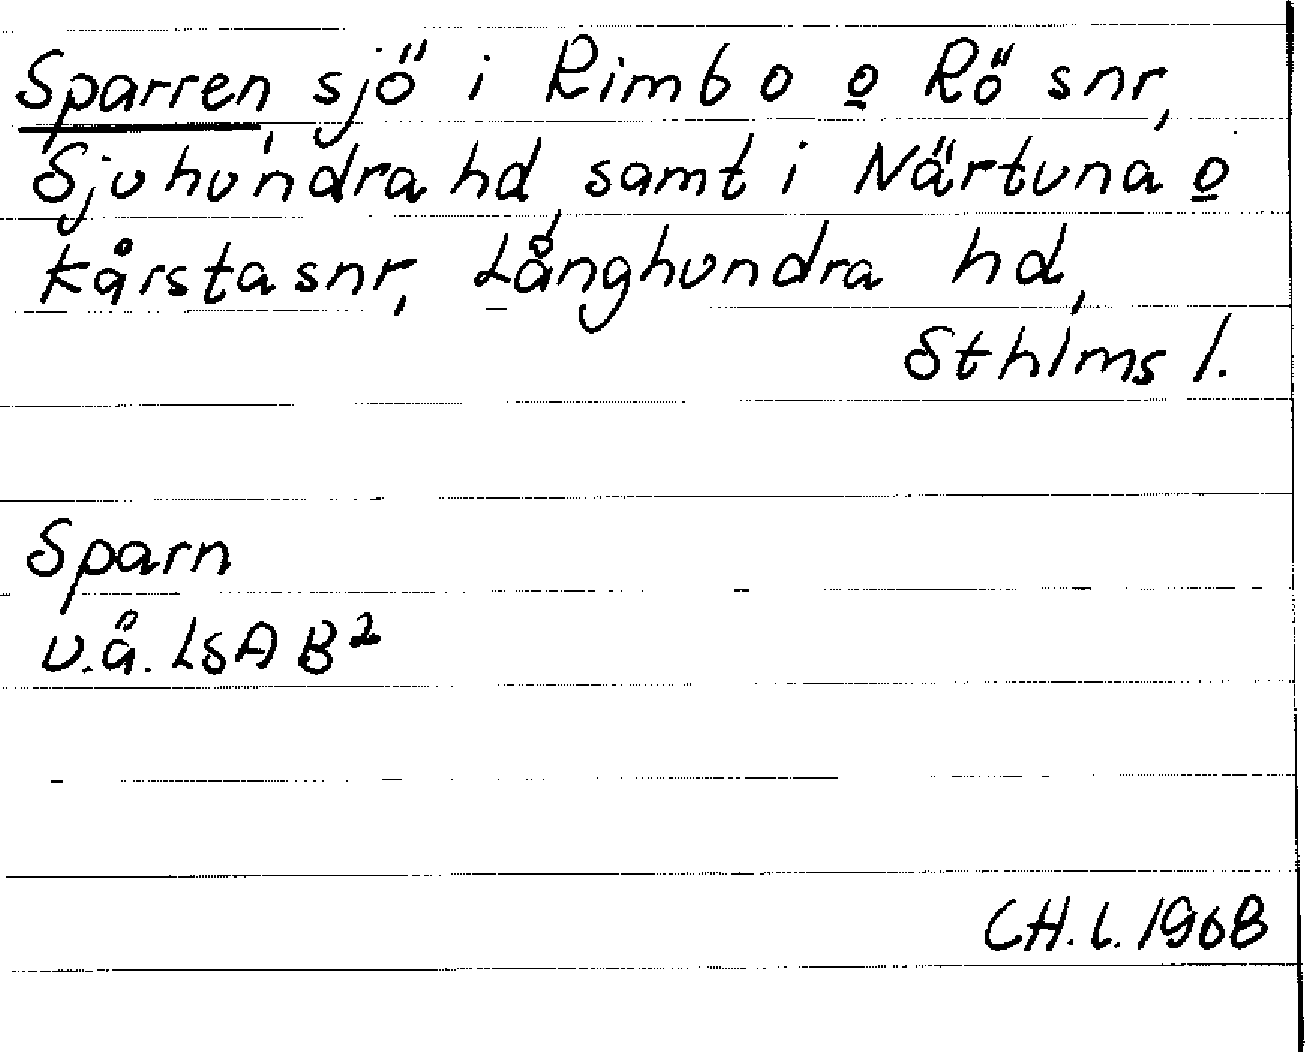 Sparren, sjö i Rimbo o Rö snr,
Sjuhundra hd, samt i Närtuna o
Kårsta snr, Långhundra hd,
Sthlms l.
Sparn
u.å. LSA B²
CH. l. 1968